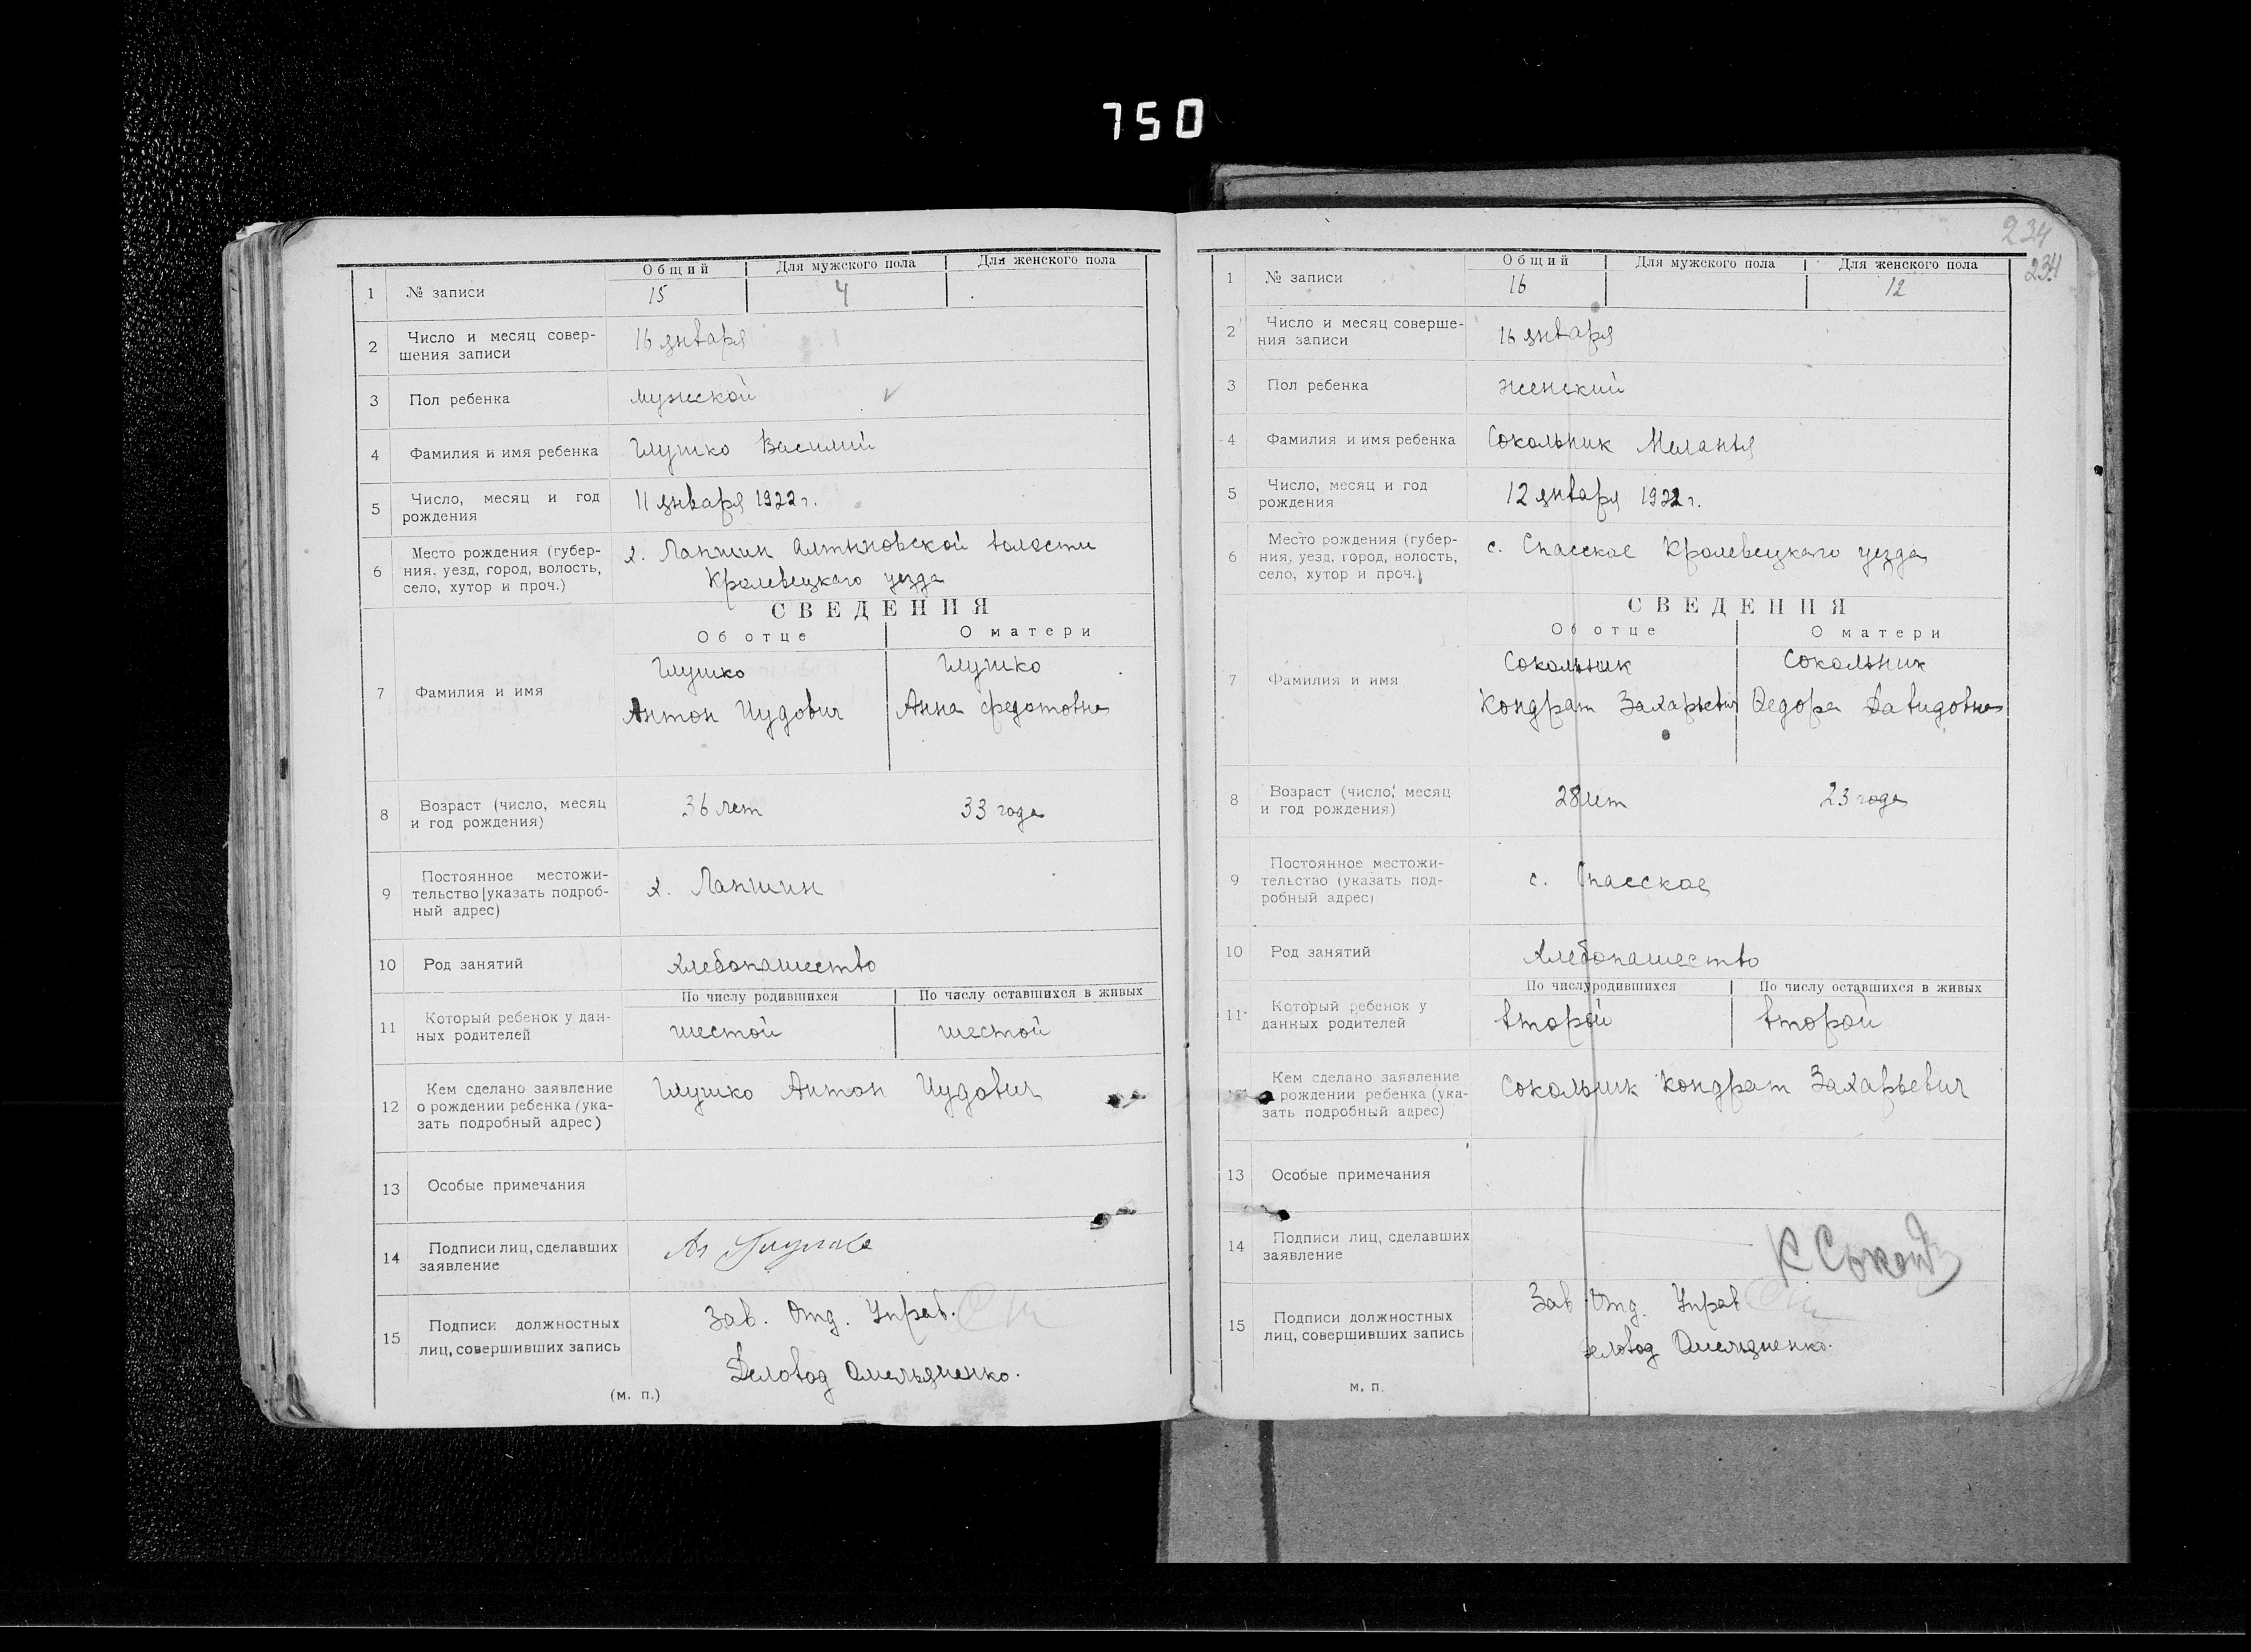 750
Общий Для мужского пола Для женского пола
1 № записи 15 4
2 Число и месяц совер-
шения записи 16 января
3 Пол ребенка мужской
4 Фамилия и имя ребенка Глушко Василий
5 Число, месяц и год
рождения 11 января 1922 г.
6 Место рождения (губер-
ния, уезд, город, волость,
село, хутор и проч.)
х. Лапшин Алтыновской волости
Кролевецкаго уезда
СВЕДЕНИЯ
Об отце О матери
7 Фамилия и имя
Глушко Глушко
Антон Иудович Анна Федотовна
8 Возраст (число, месяц
и год рождения) 36 лет 33 года
9 Постоянное местожи-
тельство (указать подроб-
ный адрес) х. Лапшин
10 Род занятий хлебопашество
По числу родившихся По числу оставшихся в живых
11 Который ребенок у дан-
ных родителей шестой шестой
12 Кем сделано заявление
о рождении ребенка (ука-
зать подробный адрес) Глушко Антон Иудович
13 Особые примечания
14 Подписи лиц, сделавших
заявление
15 Подписи должностных
лиц, совершивших запись
Зав. Отд. Управ.
Деловод Омельяненко.
(м. п.)
234
234
Общий Для мужского пола Для женского пола
1 № записи 16 12
2 Число и месяц соверше-
ния записи 16 января
3 Пол ребенка женский
4 Фамилия и имя ребенка Сокольник Меланья
5 Число, месяц и год
рождения 12 января 1922 г.
6 Место рождения (губер-
ния, уезд, город, волость,
село, хутор и проч.) с. Спасское Кролевецкаго уезда
СВЕДЕНИЯ
Об отце О матери
7 Фамилия и имя
Сокольник Сокольник
Кондрат Захарьевич Федора Давидовна
8 Возраст (число, месяц
и год рождения) 28 лет 23 года
9 Постоянное местожи-
тельство (указать под-
робный адрес) с. Спасское
10 Род занятий хлебопашество
По числу родившихся По числу оставшихся в живых
11 Который ребенок у
данных родителей второй второй
Кем сделано заявление
рождении ребенка (ука-
зать подробный адрес) Сокольник Кондрат Захарьевич
13 Особые примечания
14 Подписи лиц, сделавших
заявление
15 Подписи должностных
лиц, совершивших запись
Зав Отд. Управ
Деловод Омельяненко.
м. п.